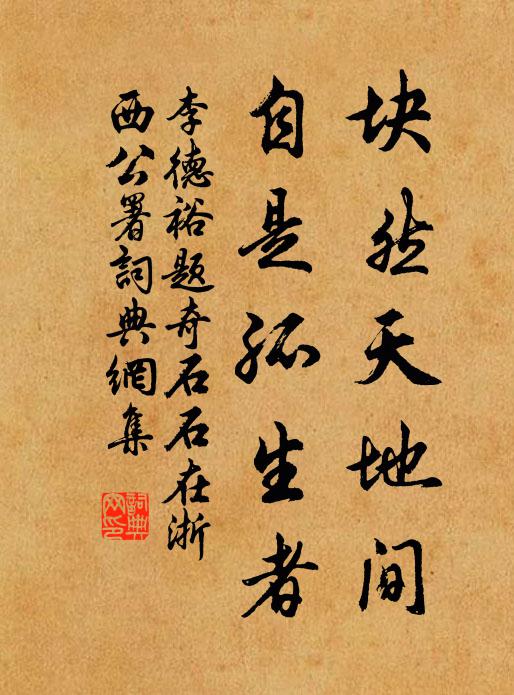 块然天地间
自是孤生者
李德裕题奇石石在浙
西公署詞典網集
詞典網印